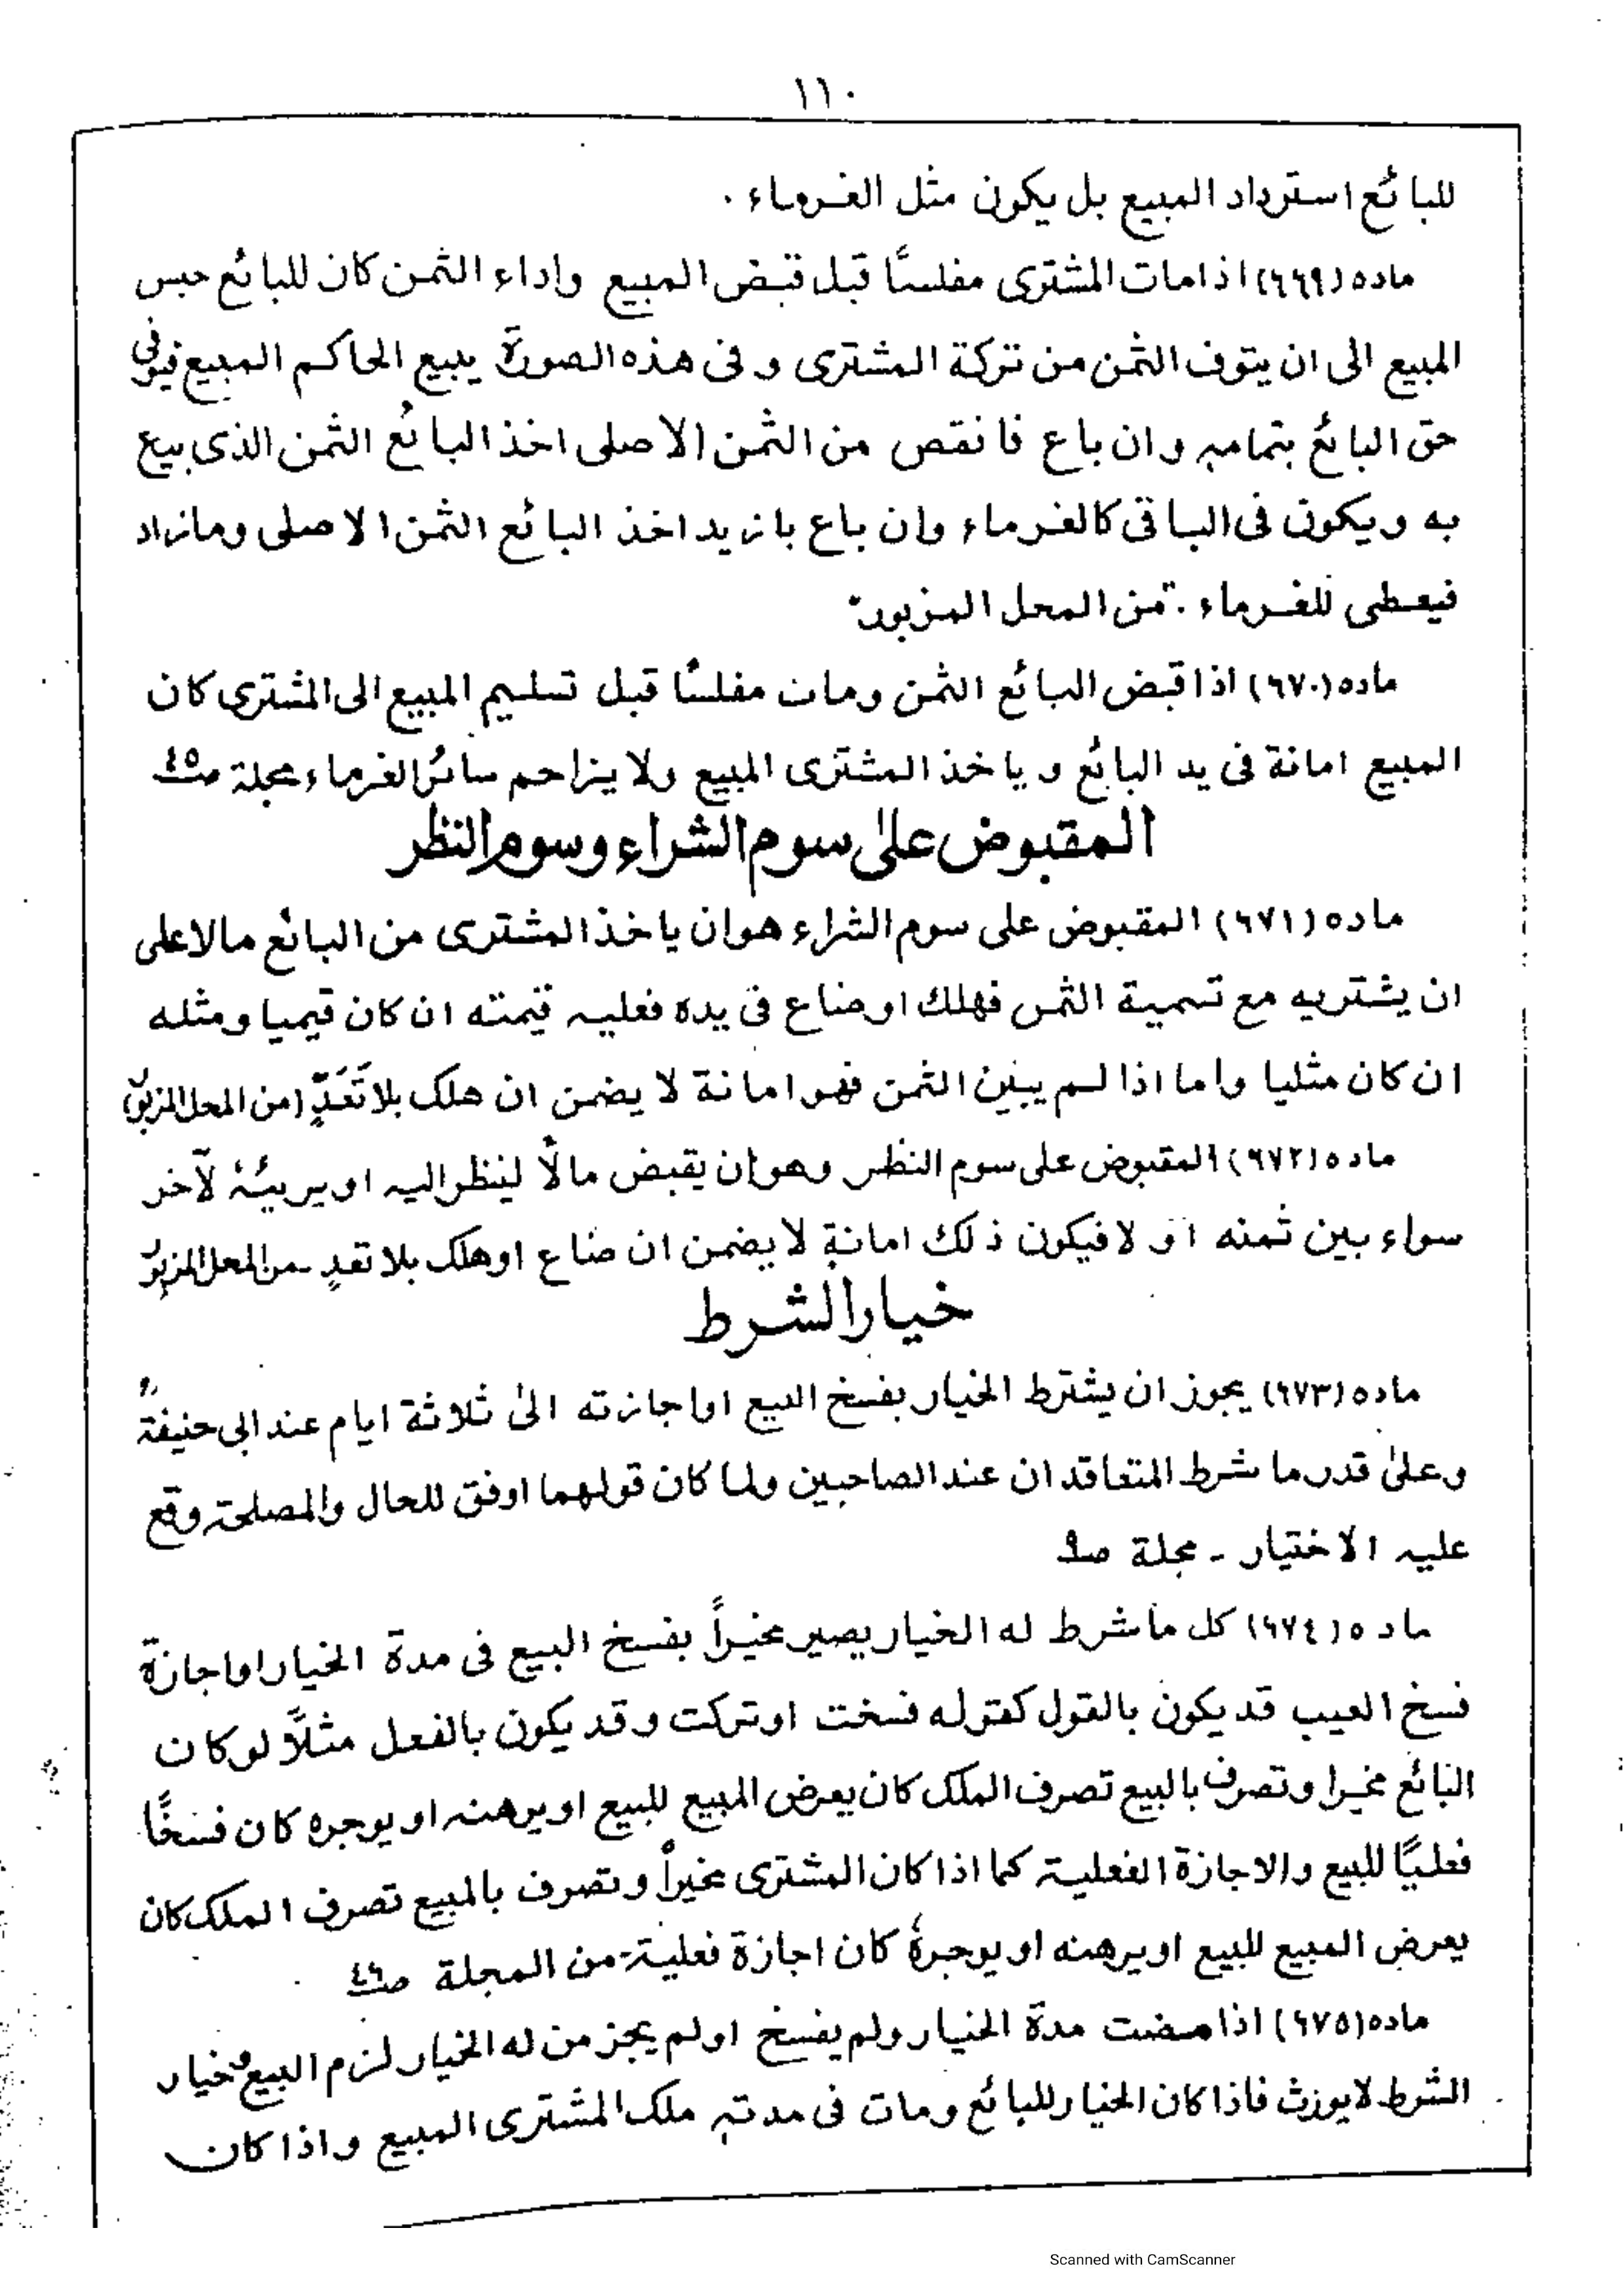 ١١٠
للبائع استرداد المبيع بل يكون مثل الغرماء ۔
ماده (٦٦٩) اذا مات المشترى مفلسًا قبل قبض المبيع واداء الثمن كان للبائع حبس
المبيع الى ان يتوف الثمن من تركة المشترى و فى هذه الصورة يبيع الحاكم المبيع فيوفى
حق البائع بتمامہ وان باع فا نقص من الثمن الاصلى اخذ البائع الثمن الذى بيع
به ويكون فى الباقى كالغرماء وان باع بازيد اخذ البائع الثمن الاصلى ومازاد
فيعطى للغرماء ۔ "من المحل المزبور"
ماده (٦٧٠) اذا قبض البائع الثمن ومات مفلسًا قبل تسليم المبيع الى المشترى كان
المبيع امانة فى يد البائع و ياخذ المشترى المبيع ولا يزاحم سائر الغرماء، مجلة صـ٤٥
المقبوض علىٰ سوم الشراء وسوم النظر
ماده (٦٧١) المقبوض على سوم الشراء هوان ياخذ المشترى من البائع مالا على
ان يشتريه مع تسمية الثمن فهلك اوضاع فى يده فعليہ قيمته ان كان قيميا ومثله
ان كان مثليا واما اذا لم يبين الثمن فهو امانة لا يضمن ان هلك بلا تَعَدٍّ (من المحل المزبور)
ماده (٦٧٢) المقبوض على سوم النظر وهوان يقبض مالًا لينظر اليہ او يريئہٗ لآخر
سواء بين ثمنه او لا فيكون ذلك امانة لا يضمن ان ضاع اوهلك بلا تعدٍ ۔ من المحل المزبور
خيار الشرط
ماده (٦٧٣) يجوز ان يشترط الخيار بفسخ البيع او اجازته الىٰ ثلاثة ايام عند ابى حنيفةؒ
وعلىٰ قدر ما شرط المتعاقدان عند الصاحبين ولما كان قولهما اوفق للحال والمصلحة وقع
عليہ الاختيار ۔ مجلة صـ٩
ماده (٦٧٤) كل ما شرط له الخيار يصير مخيراً بفسخ البيع فى مدة الخيار او اجازة
فسخ العيب قد يكون بالقول كقوله فسخت اوتركت وقد يكون بالفعل مثلًا لو كان
البائع مخيرا وتصرف بالبيع تصرف الملك كان يعرض المبيع للبيع اويرهنہ اويوجره كان فسخًا
فعليًا للبيع والاجازة الفعليۃ كما اذا كان المشترى مخيراً وتصرف بالمبيع تصرف الملك كان
يعرض المبيع للبيع اويرهنه اويوجرهٗ كان اجازة فعليۃ ۔ من المجلة صـ٤٦
ماده (٦٧٥) اذا مضت مدة الخيار ولم يفسخ اولم يجز من له الخيار لزم البيع وخيار
الشرط لايورث فاذا كان الخيار للبائع ومات فى مدتہ ملك المشترى المبيع واذا كان
Scanned with CamScanner